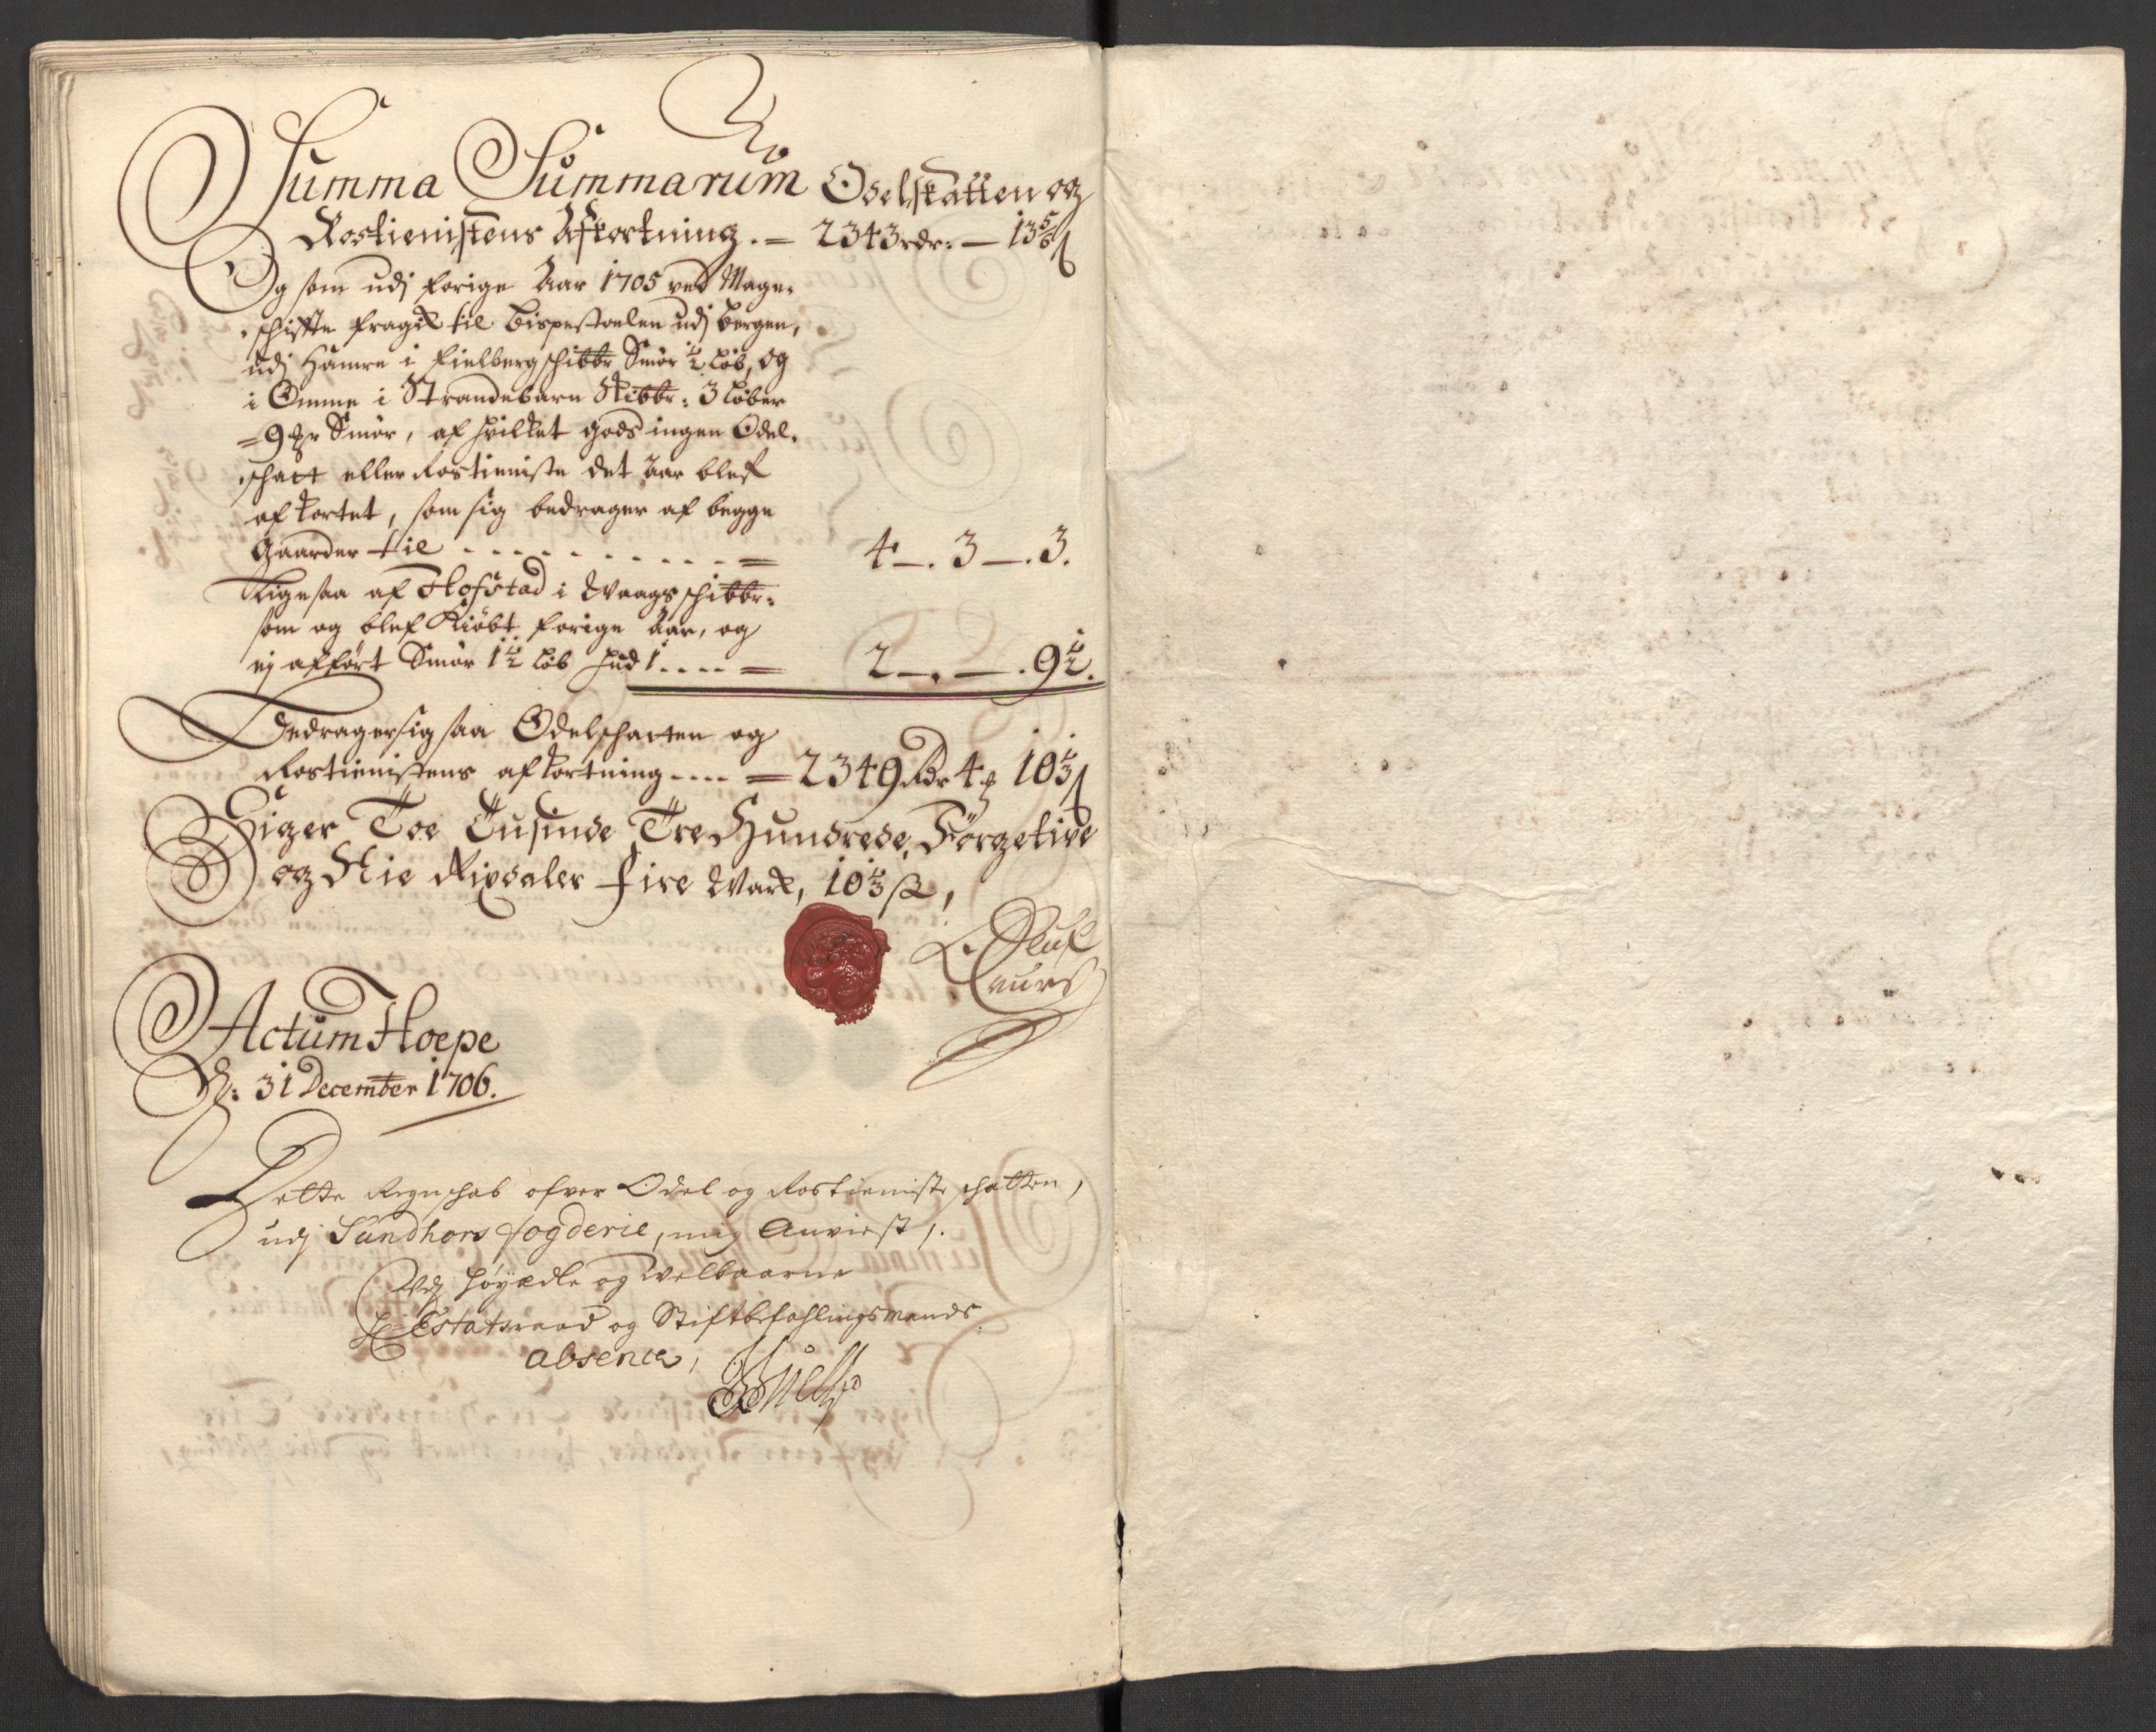 Summa Summarum Odelskatten og
Rostienistens Afkortning. = 2343 rdr: — 13 5/6 ß
Og som udj forige Aar 1705 ved Mage-
schiffte fragik til Bispestoelen udj Bergen,
udj Hamre i Fielberg schibbr Smør ½ Løb, og
i Omme i Strandebarn Skibbr: 3 Løber
= 9 Smør, af hvilket gods ingen Odel-
schatt eller Rostieniste det Aar blef
afkortet, som sig bedrager af begge
Gaarder til - - - - - - - - - = 4 —. 3 —. 3.
Ligesaa af Hofstad i Waags schibbr:
som og blef Kiøbt forige Aar, og
ej afført Smør 1½ Løb hud 1 . . . . = 2 —. — . 9½.
Bedrager sig saa Odelschatten og
Rostienistens afkortning - - - - = 2349 Rdr 4 10⅓ ß
Siger Toe Tusinde Tre Hundrede, Førgetive
og Nie Rixdaler fire Mark, 10⅓ ß,
Oluf
Laurs
Actum Hoepe
D: 31 December 1706.
Dette Regnschab ofver Odel og Rostieniste schatten,
udj Sundhors fogderie, mig Anviist,.
Udj Høyædle og Welbaarne
Hr Estatsraad og Stiftbefahlingsmands
absence,